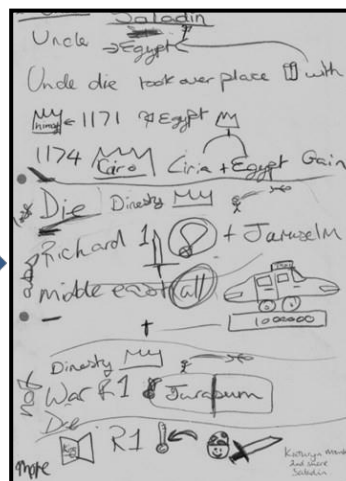 Saladin
Uncle → Egypt
Uncle die took over place with
← 1171 Egypt
1174 Cairo Ciria + Egypt Gain
Die Dinesty
Richard 1 + Jaruselm
middle east all
1000000
Dinesty
War R1
Die
R1
more
2nd share
Saladin